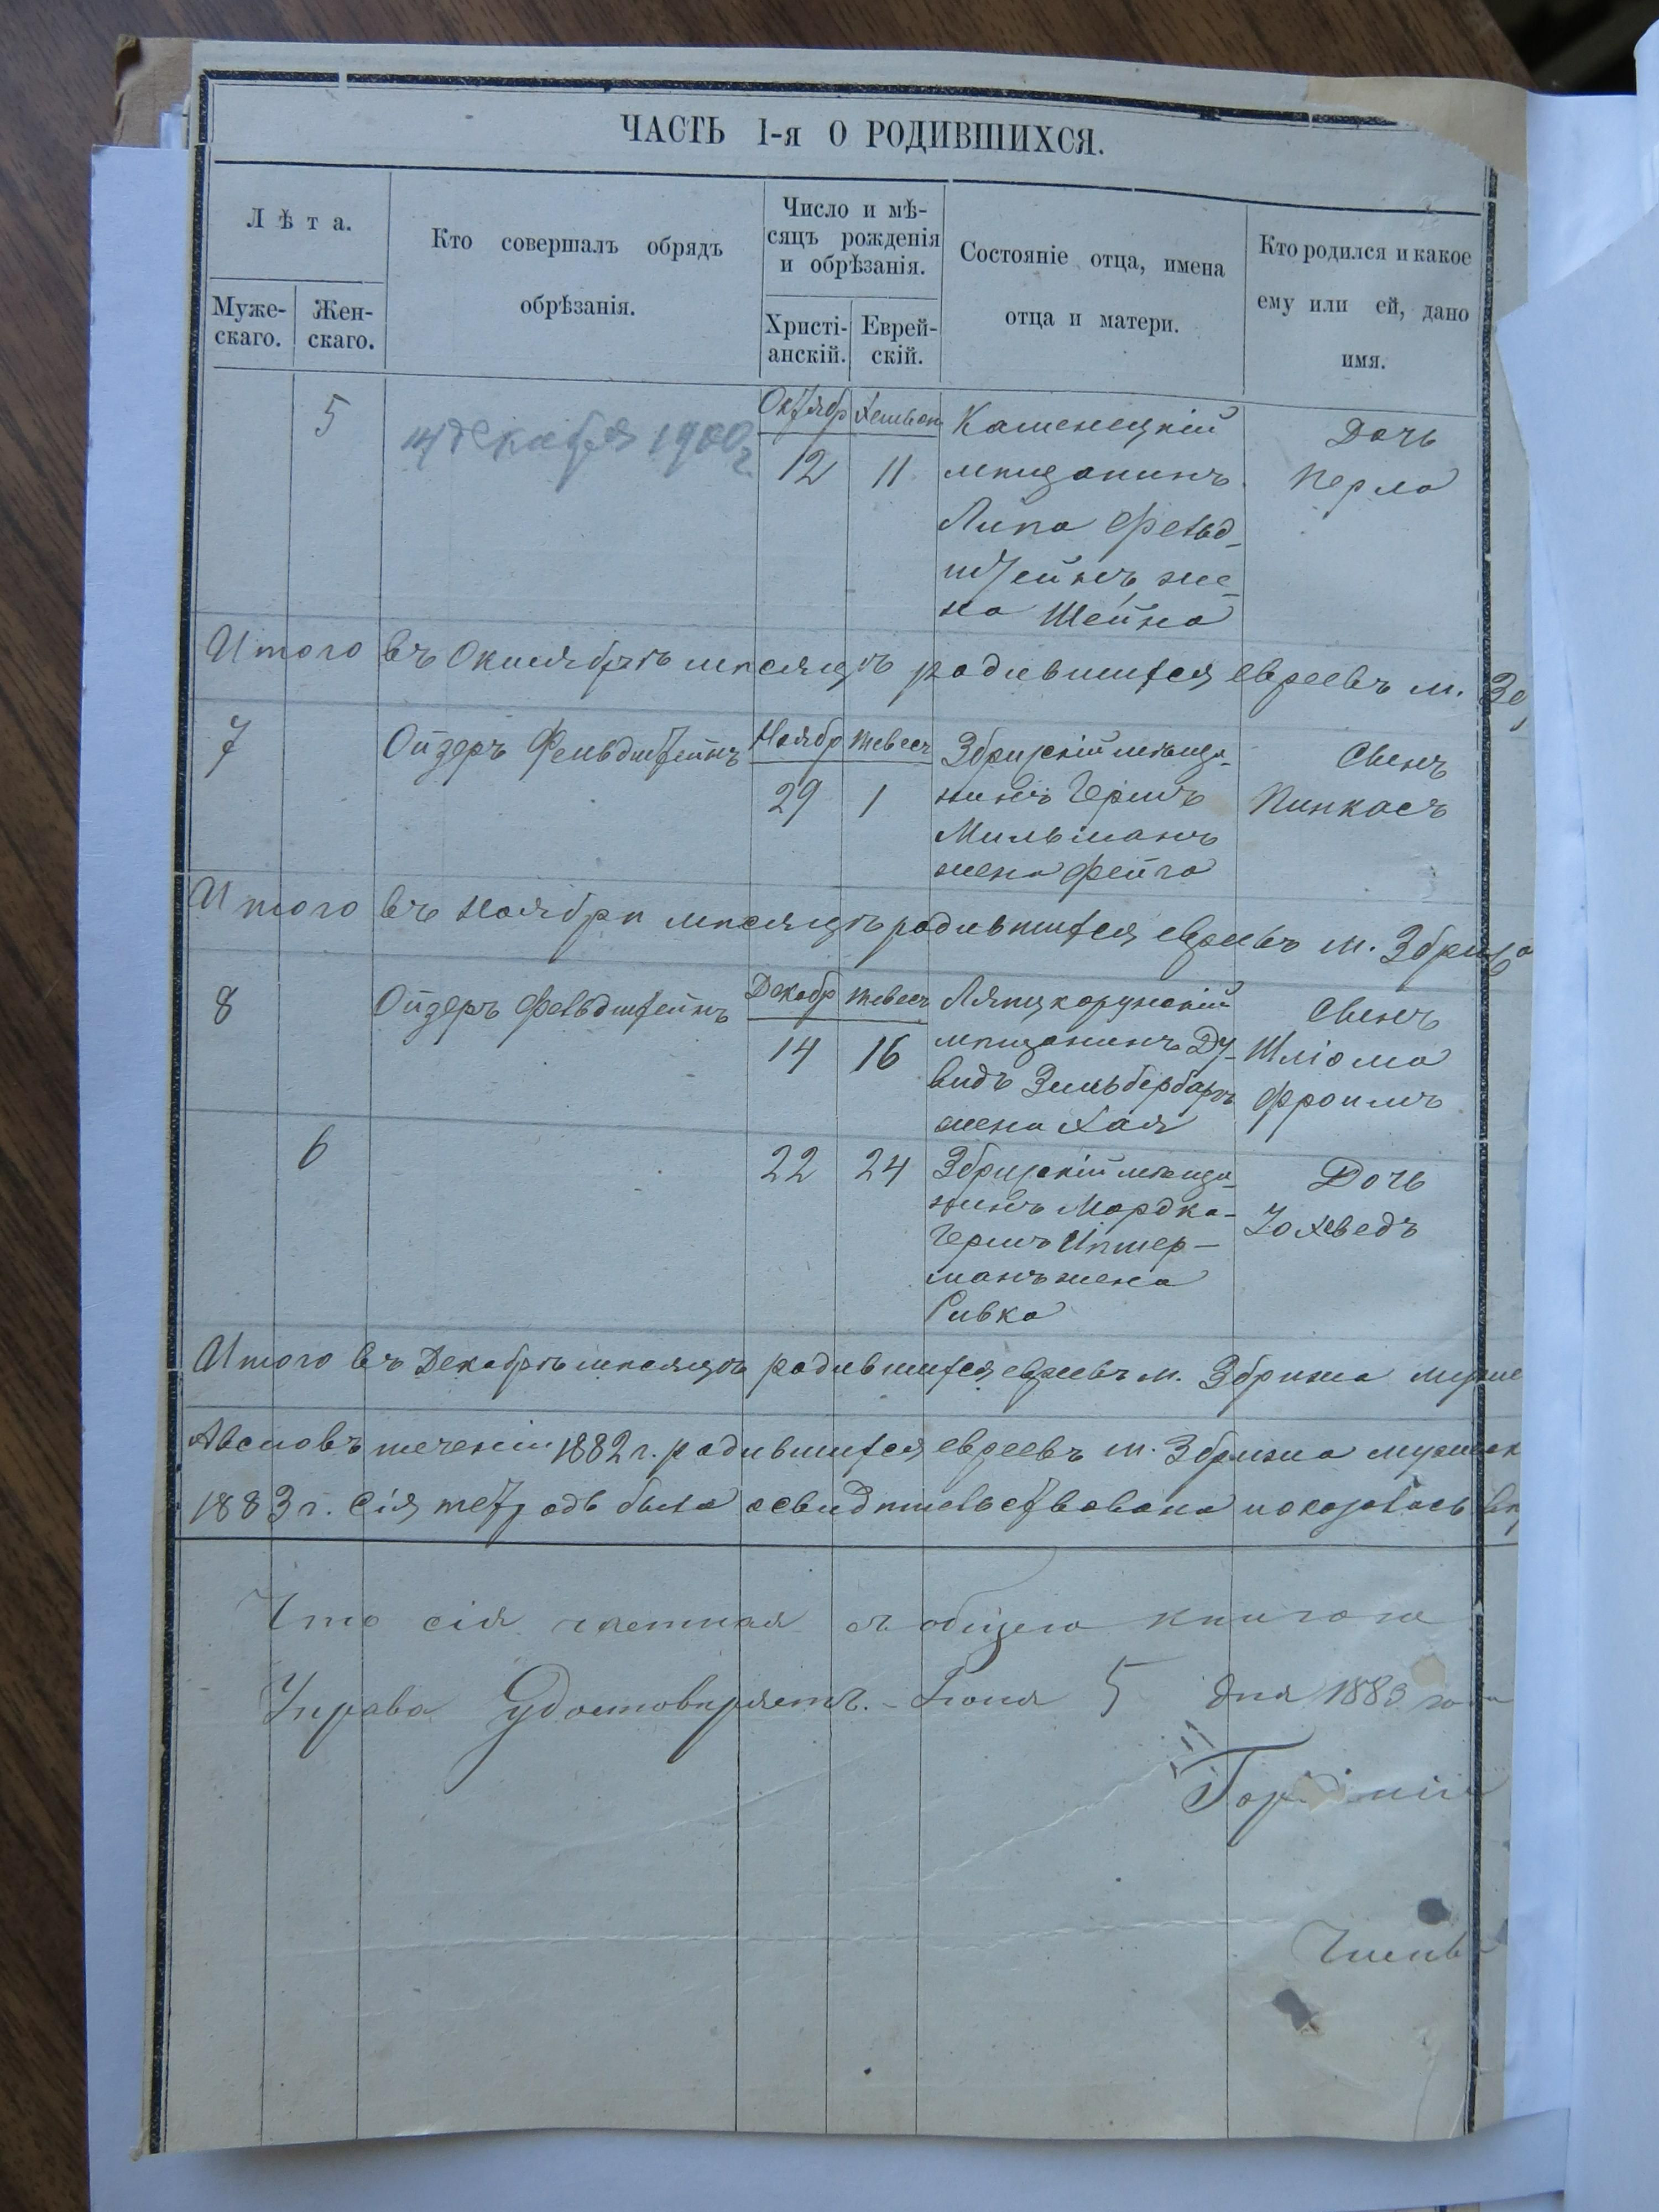 ЧАСТЬ I-я О РОДИВШИХСЯ.
Лѣта.
Муже-
скаго.
Жен-
скаго.
Кто совершалъ обрядъ
обрѣзанія.
Число и мѣ-
сяцъ рожденія
и обрѣзанія.
Христі-
анскій.
Еврей-
скій.
Состояніе отца, имена
отца и матери.
Кто родился и какое
ему или ей, дано
имя.
5
4 декабря 1900 г
Октябр
12
Хешван
11
Каменецкій
мѣщанинъ
Липа Фельд-
штейнъ, же-
на Шейна
Дочь
Перла
Итого въ Октябрѣ мѣсяцѣ родившихся евреевъ м.
7
Ойзеръ Фельдштейнъ
Ноябр
29
Тевесъ
1
Збризскій мѣща-
нинъ Гершъ
Мильманъ
жена Фейга
Сынъ
Пинкасъ
Итого въ Ноябрѣ мѣсяцѣ родившихся евреевъ м. Збрижа
8
Ойзеръ Фельдштейнъ
Декабр
14
Тевесъ
16
Ляпцкорунскій
мѣщанинъ Ду-
видъ Зильбербаръ
жена Хая
Сынъ
Шліома
Фроимъ
6
22
24
Збризскій мѣща-
нинъ Мордко-
Гершъ
манъ жена
Ривка
Дочь
Іохведъ
Итого въ Декабрѣ мѣсяцѣ родившихся евреевъ м. Збрижа муже
А всего въ теченіи 1882 г. родившихся евреевъ м. Збрижа мужеск
1883 г. Сія тетрадь была освидѣтельствована и оказалась
Что сія съ общею книгою
Управа Удостовѣряетъ. - Іюня 5 дня 1883 года
Членъ